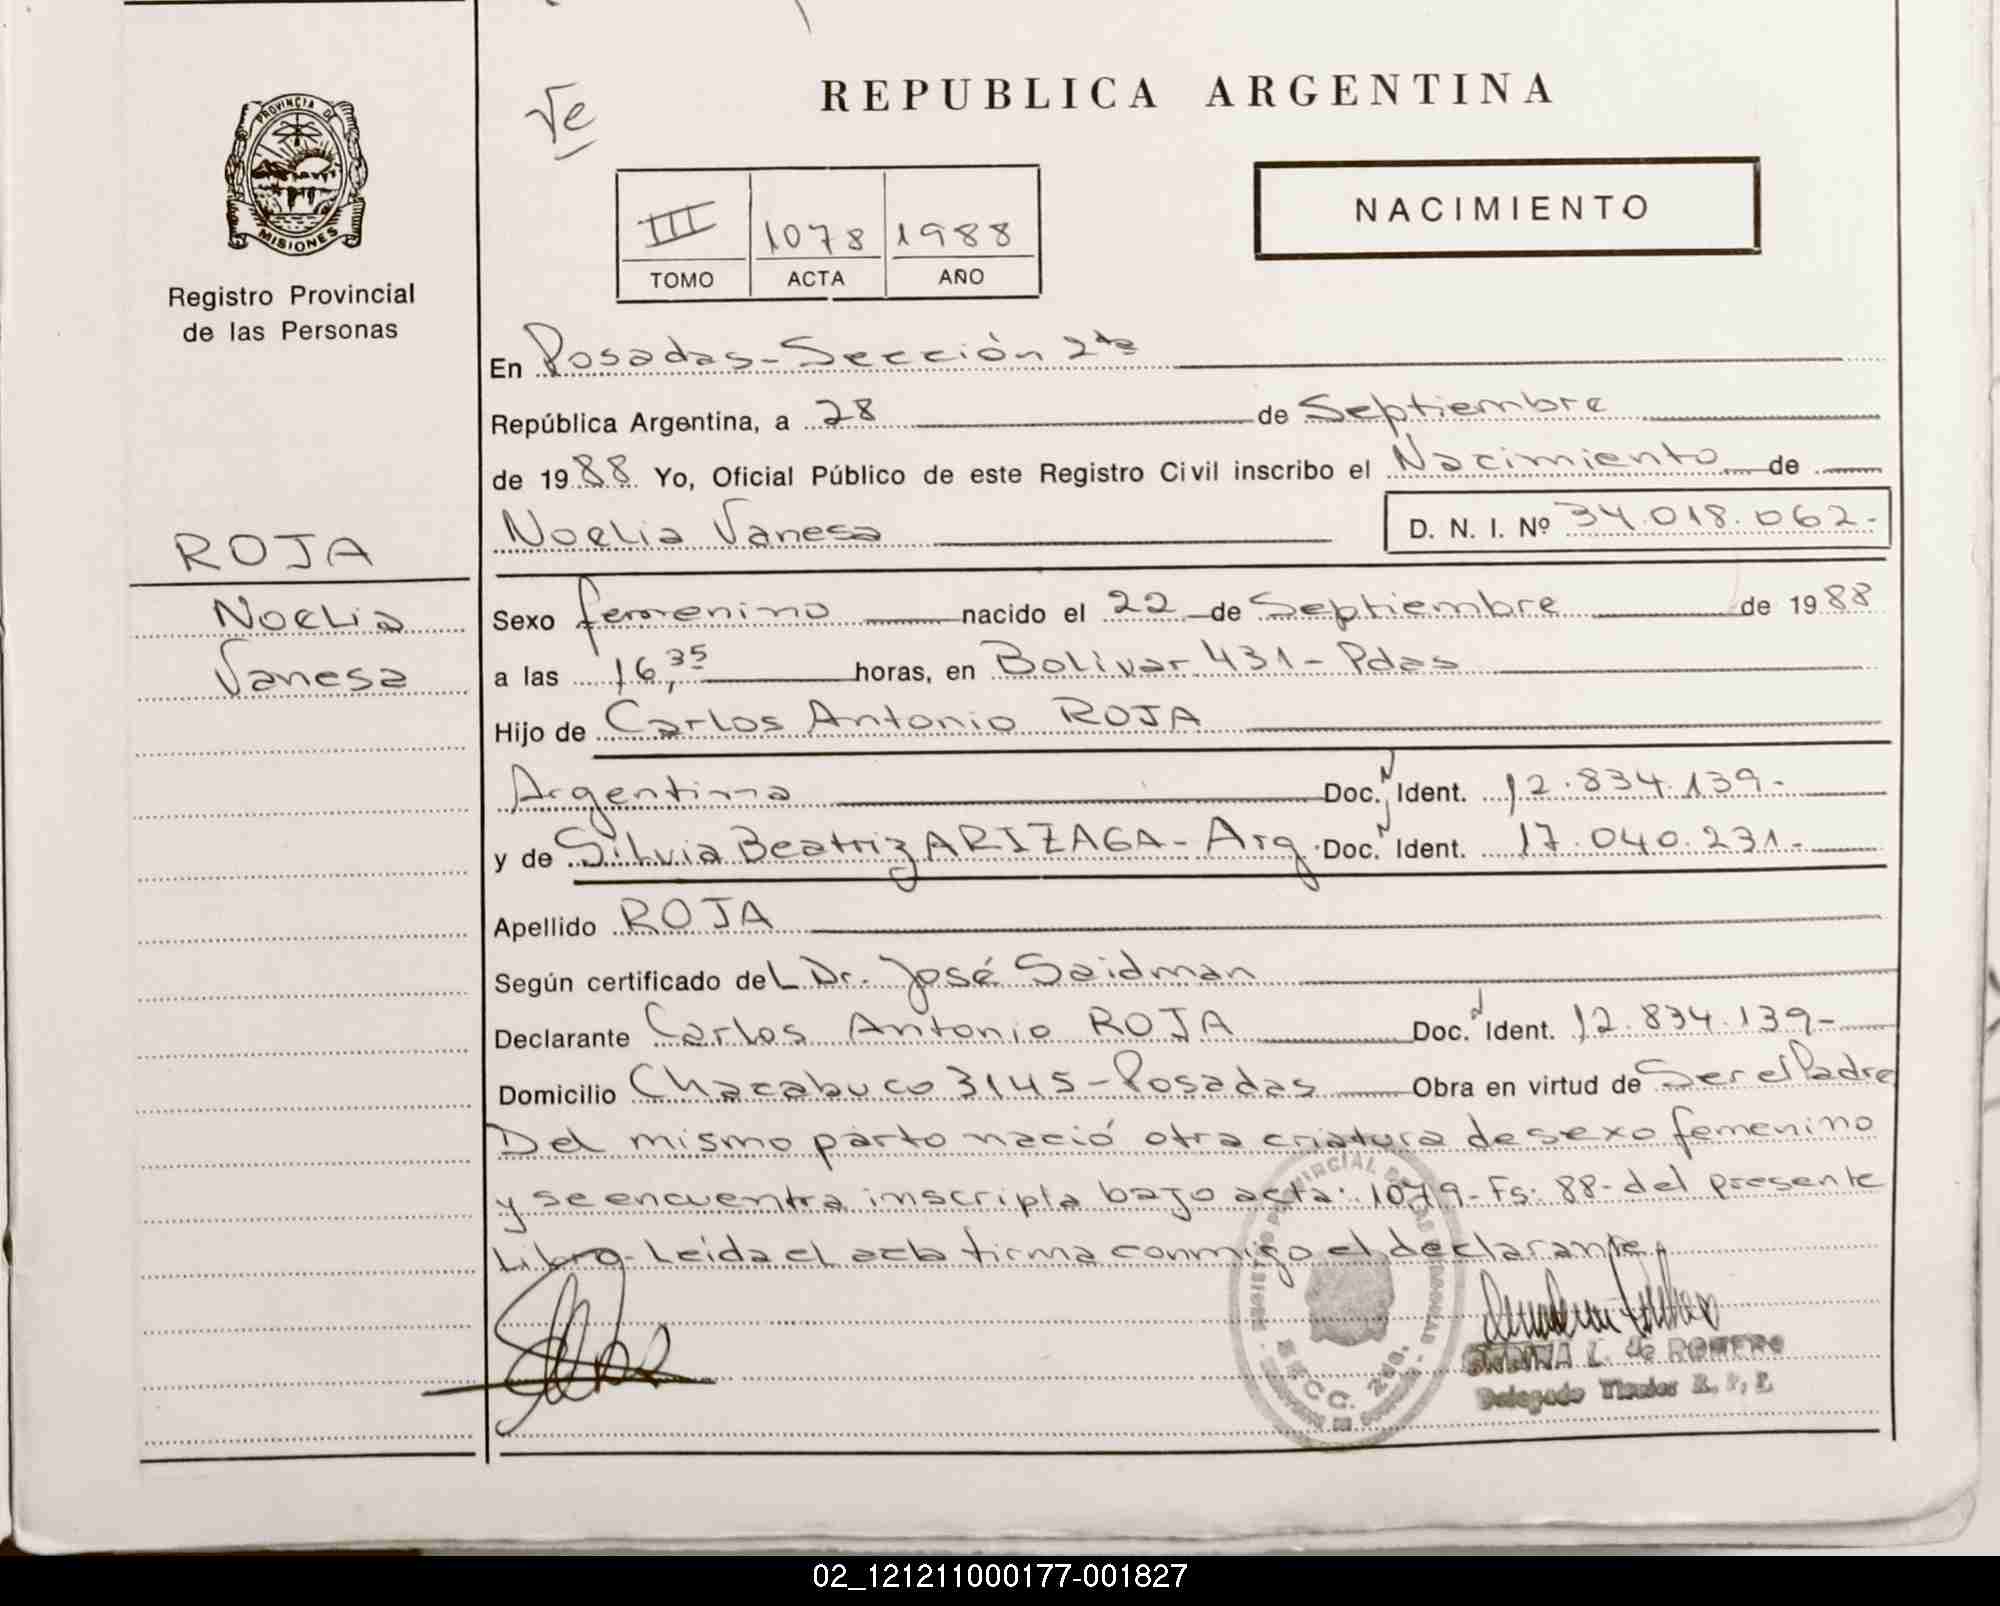 REPUBLICA ARGENTINA
PROVINCIA DE
MISIONES
Registro Provincial
de las Personas
III 1078 1988
TOMO ACTA AÑO
NACIMIENTO
En Posadas-Sección 2da
República Argentina, a 28 de Septiembre
de 1988 Yo, Oficial Público de este Registro Civil inscribo el Nacimiento de
Noelia Vanesa D. N. I. Nº 34.018.062-
ROJA
Noelia
Vanesa
Sexo femenino nacido el 22 de Septiembre de 1988
a las 16,35 horas, en Bolivar 431-Pdas
Hijo de Carlos Antonio ROJA
Argentina Doc. N Ident. 12.834.139-
y de Silvia Beatriz ARIZAGA-Arg. Doc. N Ident. 17.040.231-
Apellido ROJA
Según certificado del Dr. José Saidman
Declarante Carlos Antonio ROJA Doc. N Ident. 12.834.139-
Domicilio Chacabuco 3145-Posadas Obra en virtud de Ser el Padre
Del mismo parto nació otra criatura de sexo femenino
y se encuentra inscripta bajo acta: 1079-Fs: 88-del presente
Libro-Leída el acta firma conmigo el declarante
L. de ROMERO
Delegado Titular R. P. P.
SECC. 2da.
02_121211000177-001827